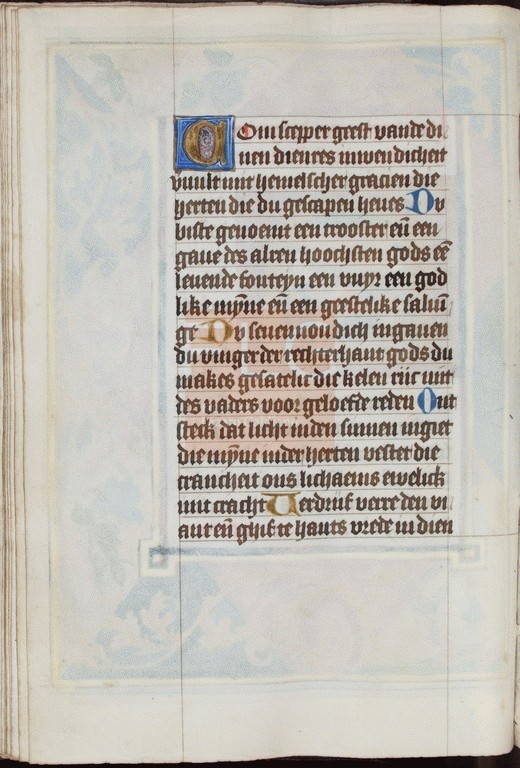 Com scepper geest vande die
nen dienres inwendicheit
vuult mit hemelscher gracien die
herten die du gescapen heues Du
biste genoemt een trooster en̄ een
gaue des alren hoochsten gods ee̅
leuende fonteyn een vuyr een god
like my̅ne en̄ een geestelike saluin̅
ge Du seuenuoudich ingauen
du vinger der rechterhant gods du
makes gesatelic die kelen riic mit
des vaders voor geloefde reden Ont
steck dat licht inden sinnen ingiet
die my̅ne inder herten vester die
cranckeit ons lichaems ewelick
mit cracht Verdrijf verre den vi
ant en̄ ghif te hants vrede in dien